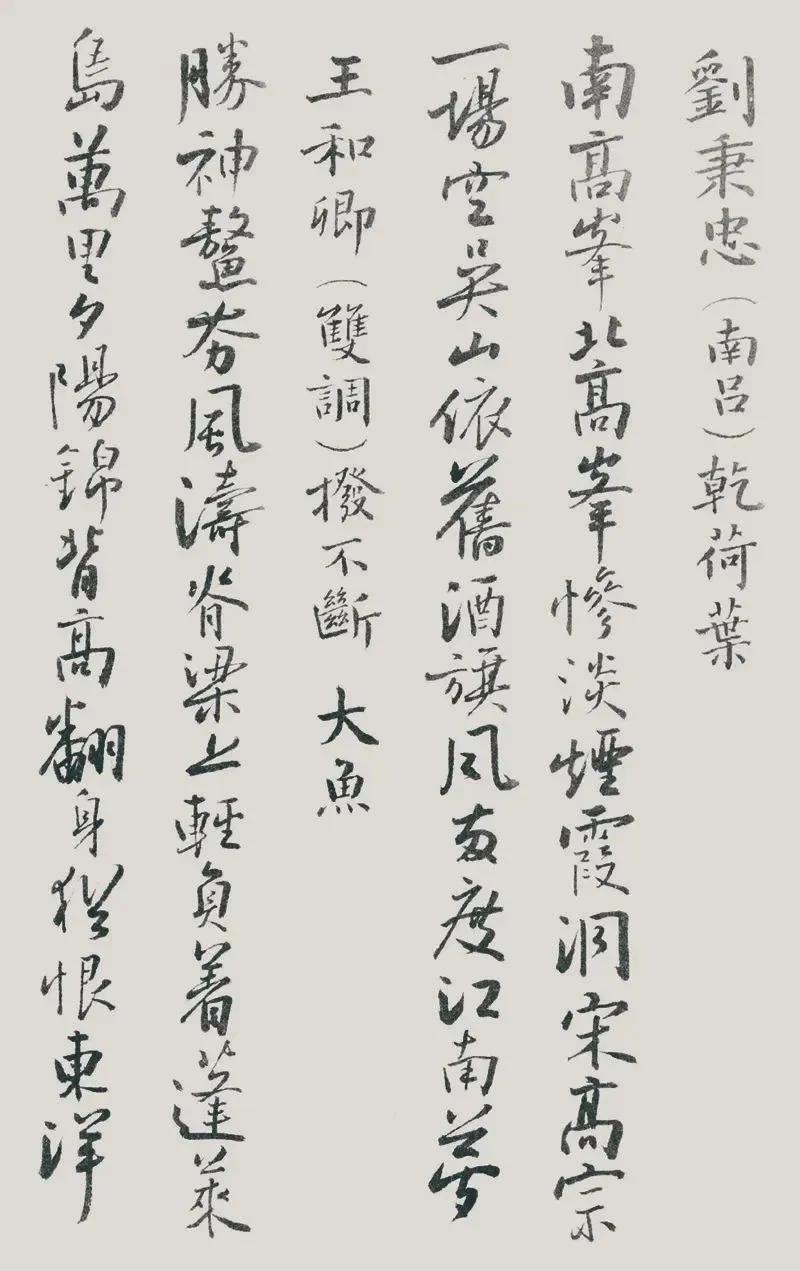 劉秉忠（南吕）乾荷葉
南高峯北高峯慘淡煙霞洞宋高宗
一場空吴山依舊酒旗風两度江南夢
王和卿（雙調）撥不斷 大魚
勝神鰲夯風濤脊梁上輕負着蓬萊
島萬里夕陽錦背高翻身猶恨東洋